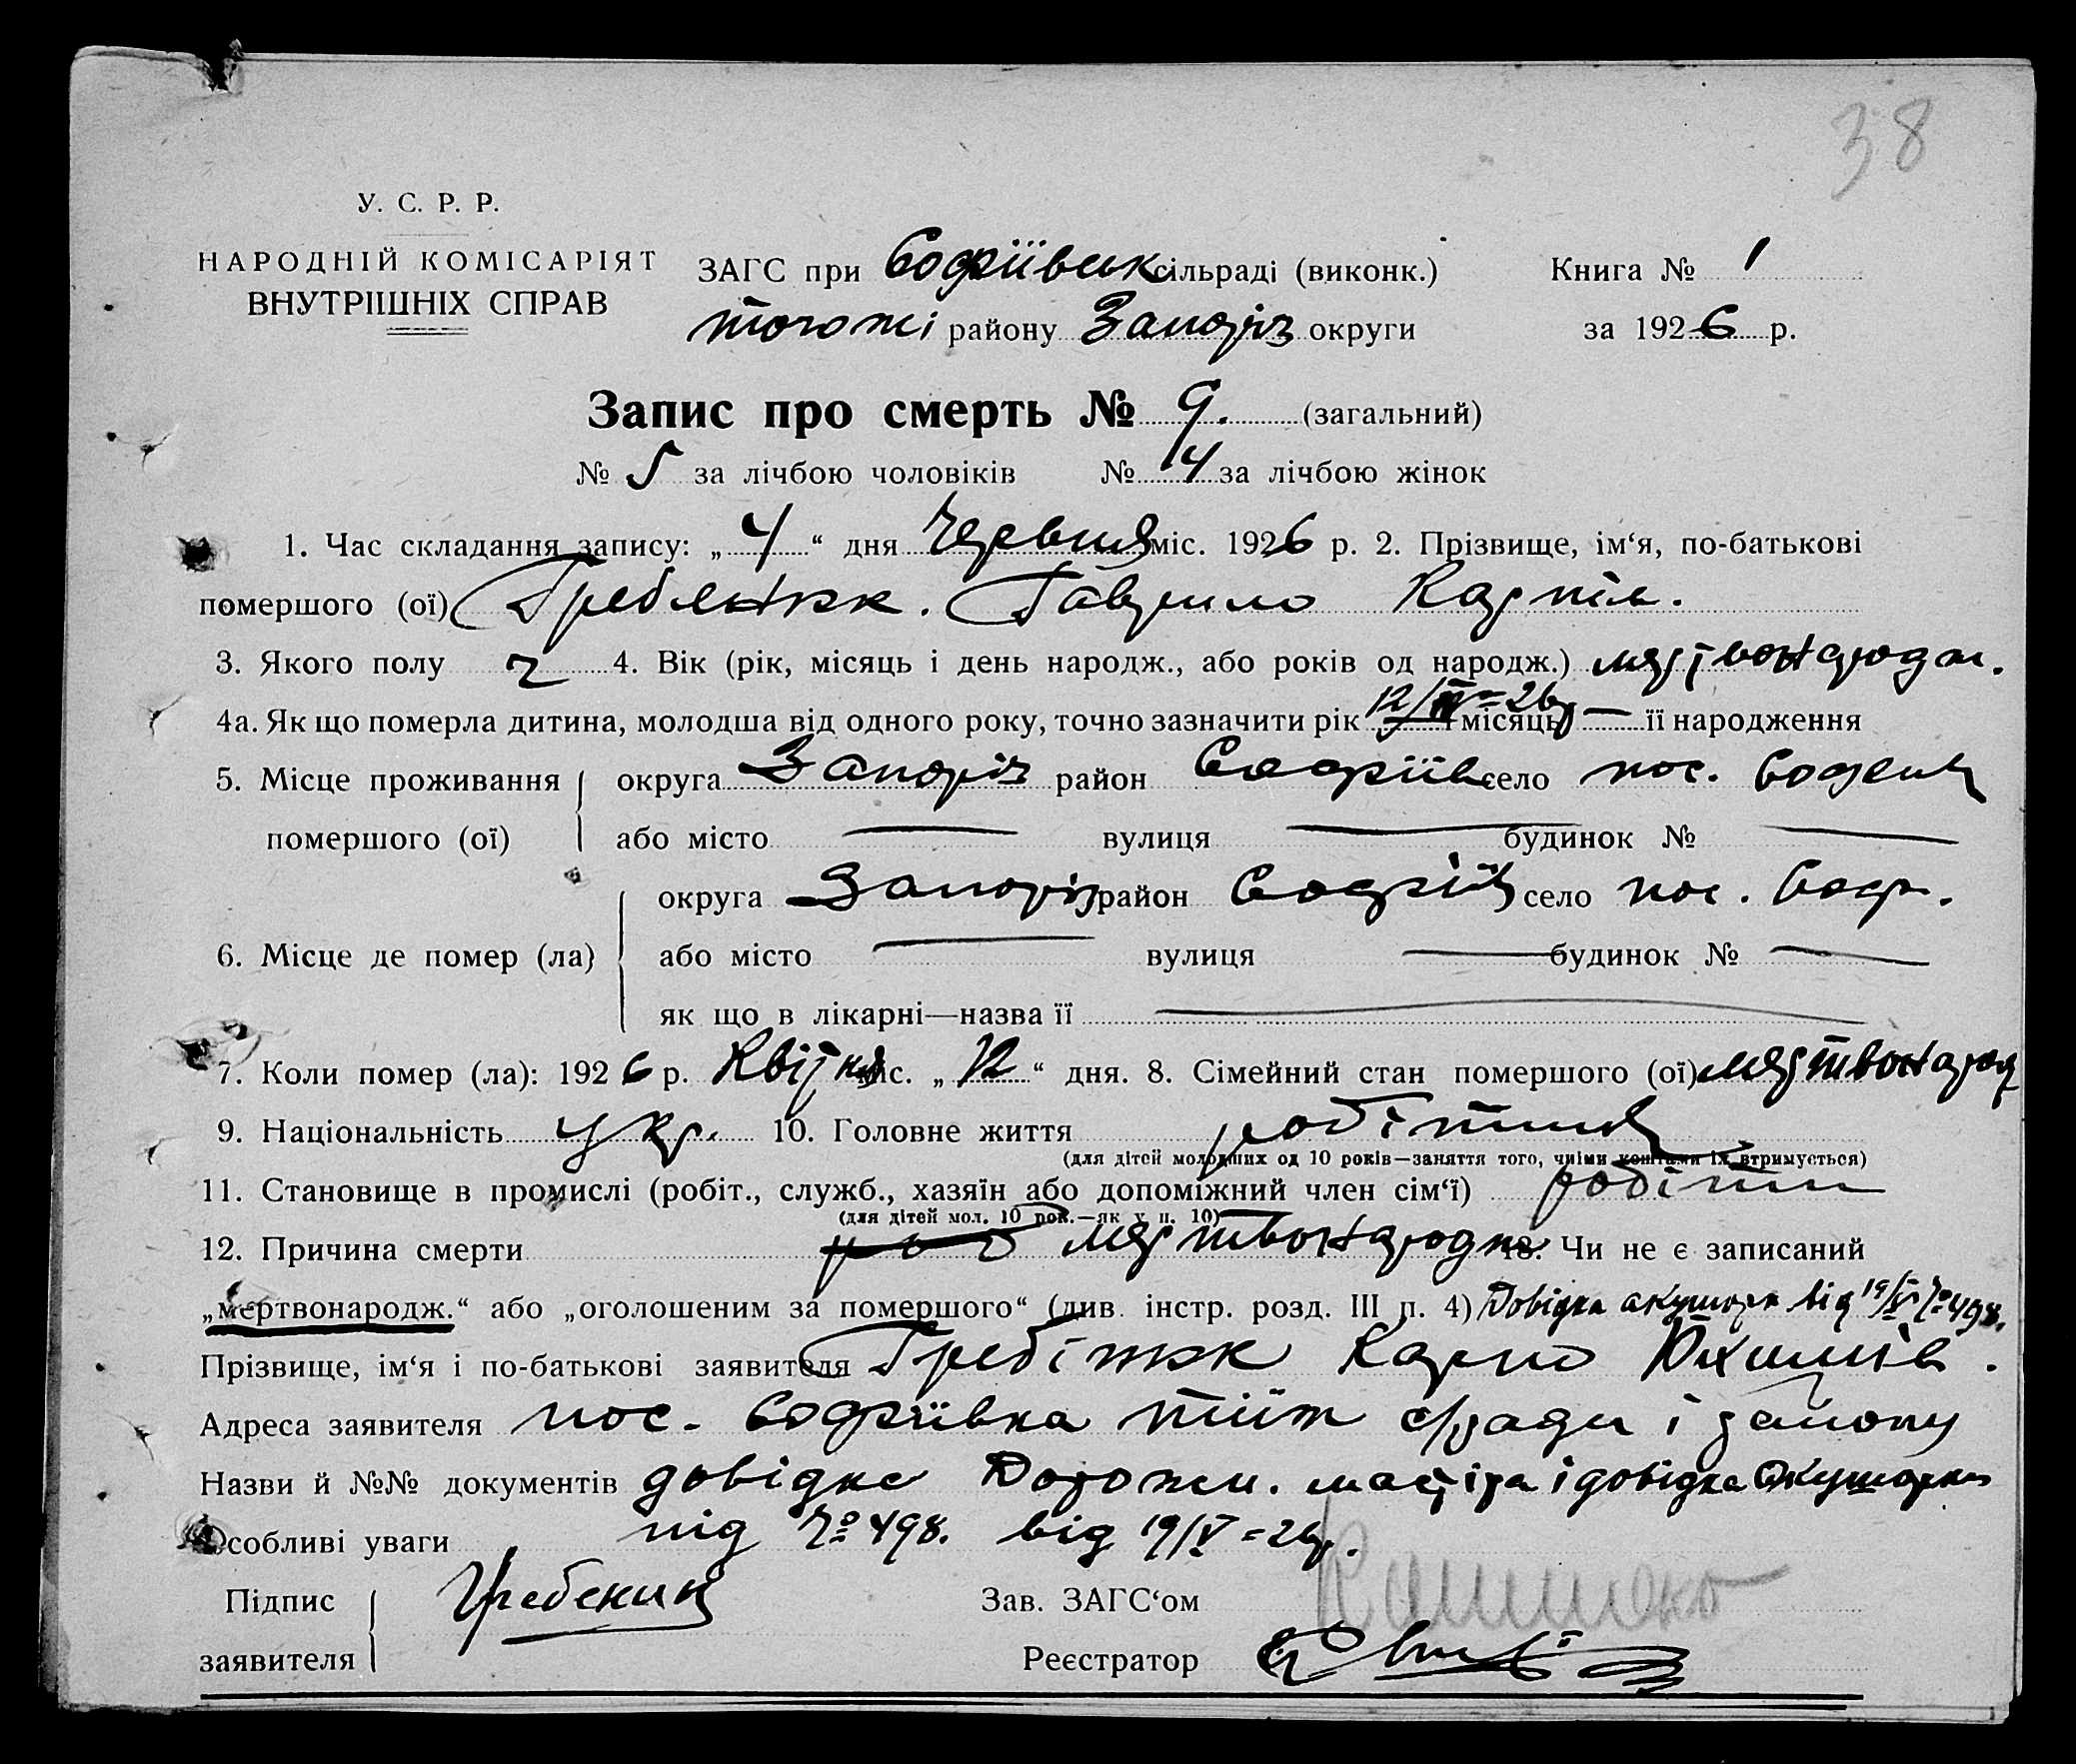 38
У. С. Р. Р.
НАРОДНІЙ КОМІСАРІЯТ
ВНУТРІШНІХ СПРАВ
ЗАГС при Софіївськ сільраді (виконк.)
Книга № 1
тогожі району Запоріз округи
за 1926 р.
Запис про смерть № 9. (загальний)
№ 5 за лічбою чоловіків № 4 за лічбою жінок
1. Час складання запису: „4“ дня Червня міс. 1926 р. 2. Прізвище, ім‘я, по-батькові
помершого (ої) Гаврило Карпів.
3. Якого полу ч 4. Вік (рік, місяць і день народж., або років од народж.) мертвонародж.
4а. Як що померла дитина, молодша від одного року, точно зазначити рік 12/IV=26р і місяць — її народження
5. Місце проживання помершого (ої) округа Запоріз район Софіїв село пос.
або місто — вулиця — будинок № —
6. Місце де помер (ла) округа Запоріз район Софіїв село пос. Соф.
або місто — вулиця — будинок № —
як що в лікарні—назва її —
7. Коли помер (ла): 1926 р. Квітня міс. „12“ дня. 8. Сімейний стан помершого (ої) мертвонарод
9. Національність укр. 10. Головне життя робітник
(для дітей молодших од 10 років—заняття того, чиїми коштами їх втримується)
11. Становище в промислі (робіт., служб., хазяїн або допоміжний член сім‘ї) робітн
(для дітей мол. 10 рок.—як у п. 10)
12. Причина смерти роб мертвонародж 13. Чи не є записаний
„мертвонародж.“ або „оголошеним за помершого“ (див. інстр. розд. III п. 4) Довідка акушорк від 19/V № 498.
Прізвище, ім‘я і по-батькові заявителя Карпо
Адреса заявителя пос. Софіївка тієїж с/ради і району
Назви й №№ документів довідка Дорожн. мастіра і довідка Акушорки
Особливі уваги під № 498. від 19/V=26р.
Підпис заявителя
Зав. ЗАГС‘ом
Реєстратор